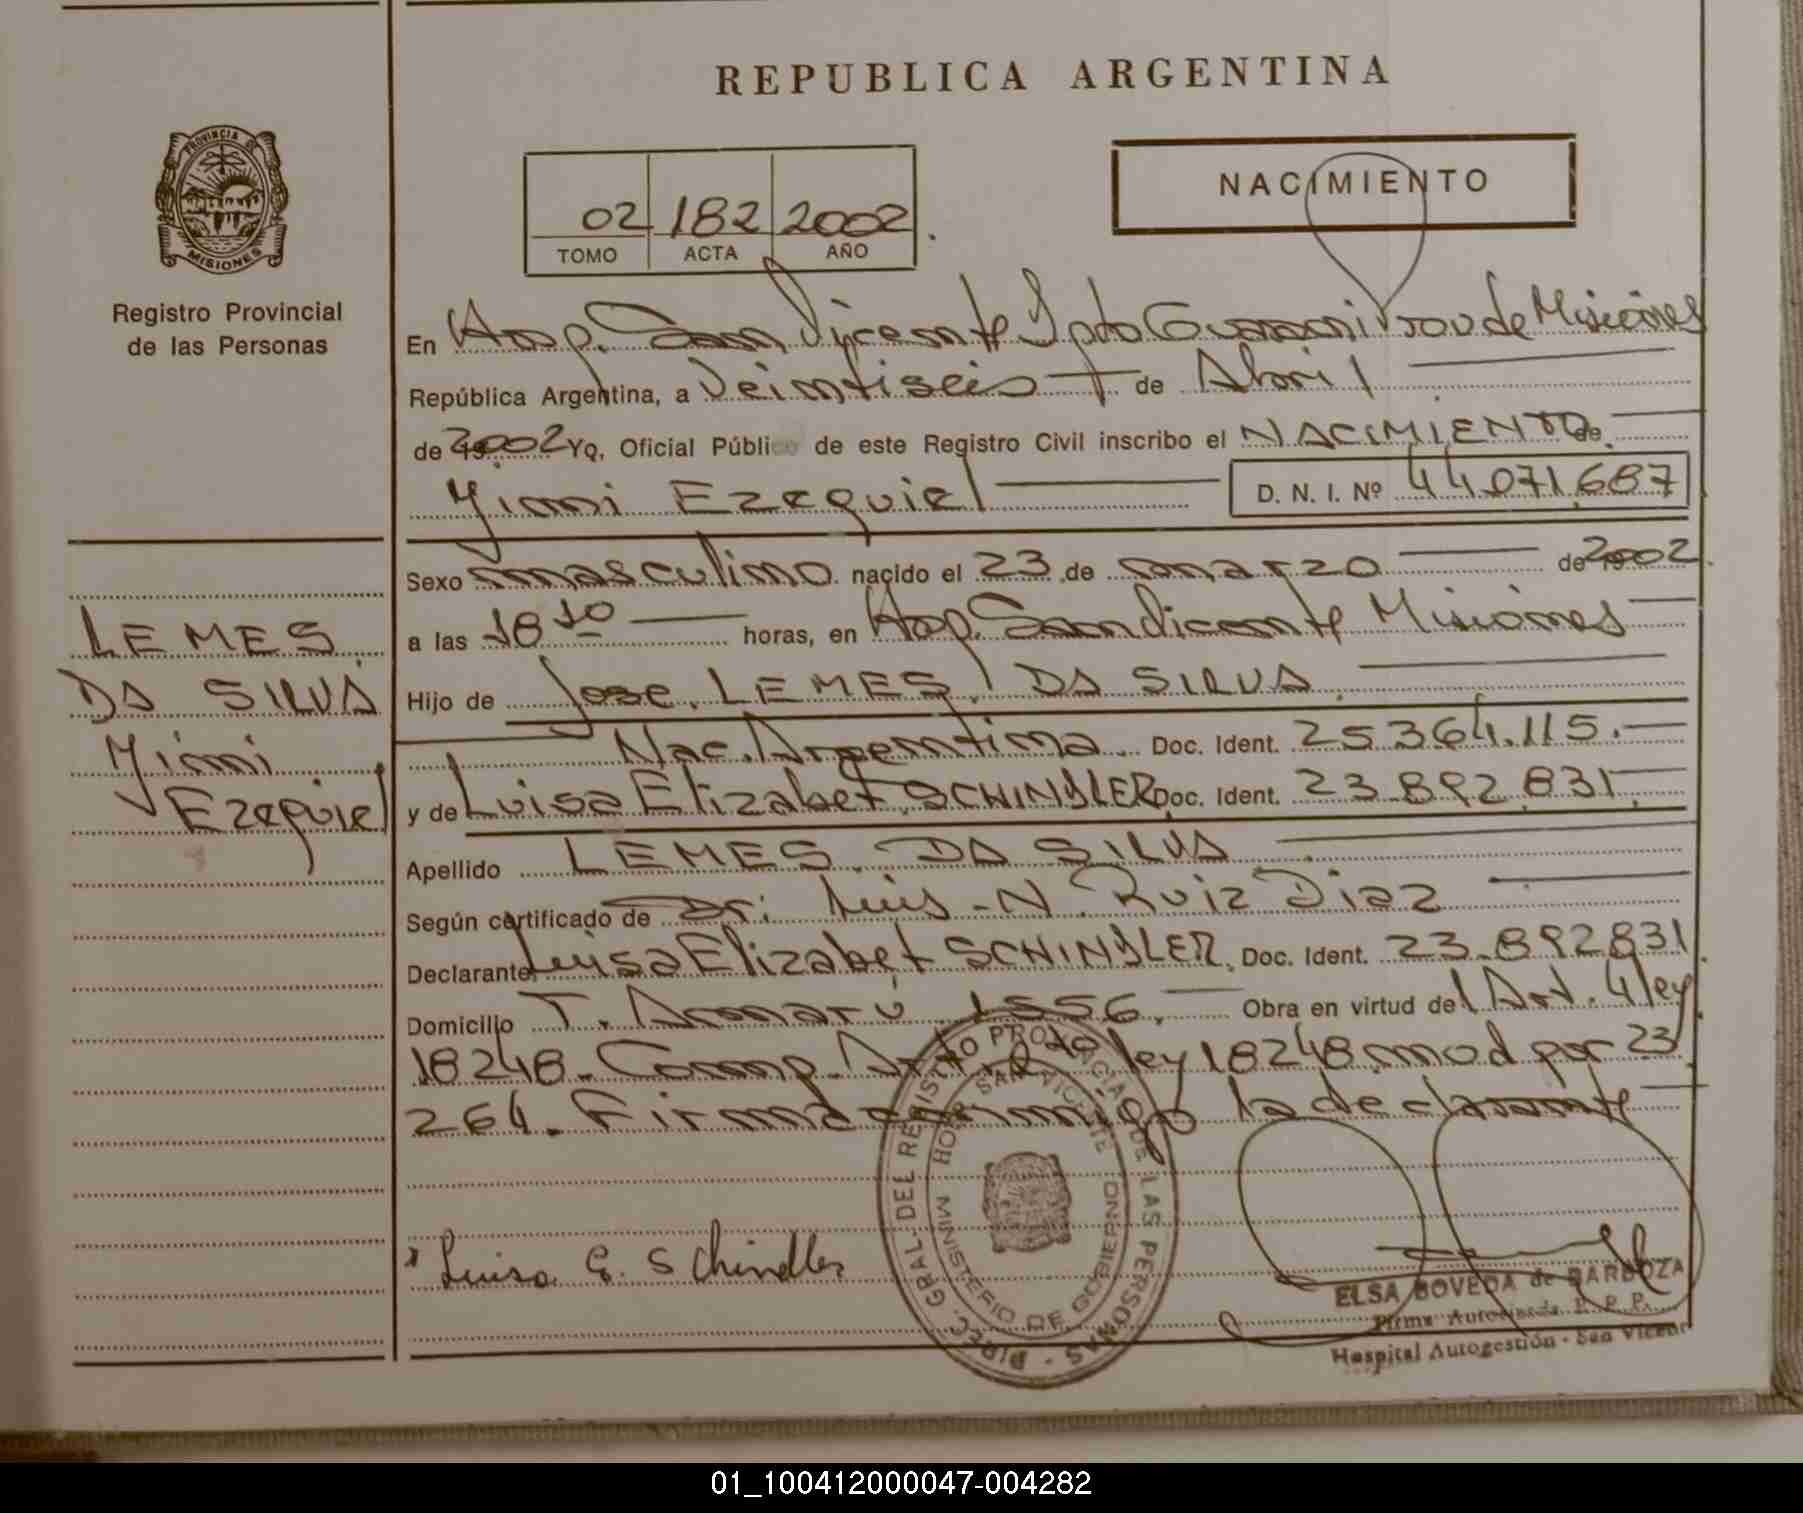 REPUBLICA ARGENTINA
PROVINCIA DE
MISIONES
Registro Provincial
de las Personas
NACIMIENTO
02 182 2002
TOMO ACTA AÑO
En Hosp. San Vicente Dpto Guarani Prov de Misiones
República Argentina, a Veintiseis de Abril
de 2002 Yo, Oficial Público de este Registro Civil inscribo el NACIMIENTO de
Yimi Ezequiel D. N. I. Nº 44.071.687
Sexo masculino nacido el 23 de marzo de 2002
a las 18 10 horas, en Hosp. San Vicente Misiones
Hijo de Jose LEMES DA SILVA
Nac. Argentina Doc. Ident. 25 364.115.
y de Luisa Elizabet SCHINDLER Doc. Ident. 23.892.831
Apellido LEMES DA SILVA
Según certificado de Dr. Luis - N Ruiz Diaz
Declarante Luisa Elizabet SCHINDLER Doc. Ident. 23.892831
Domicilio T. Amaru 1556. Obra en virtud del Art. 4 ley
18248. Comp. Art. ley 18248 mod por 23
264. Firma conmigo la declarante
LEMES
DA SILVA
Yimi
Ezequiel
Luisa E. Schindler
DIREC. GRAL. DEL REGISTRO PROVINCIAL DE LAS PERSONAS
HOSP. SAN VICENTE
MINISTERIO DE GOBIERNO
ELSA BOVEDA de BARBOZA
Firma Autorizada R. P. P.
Hospital Autogestión - San Vicente
01_100412000047-004282